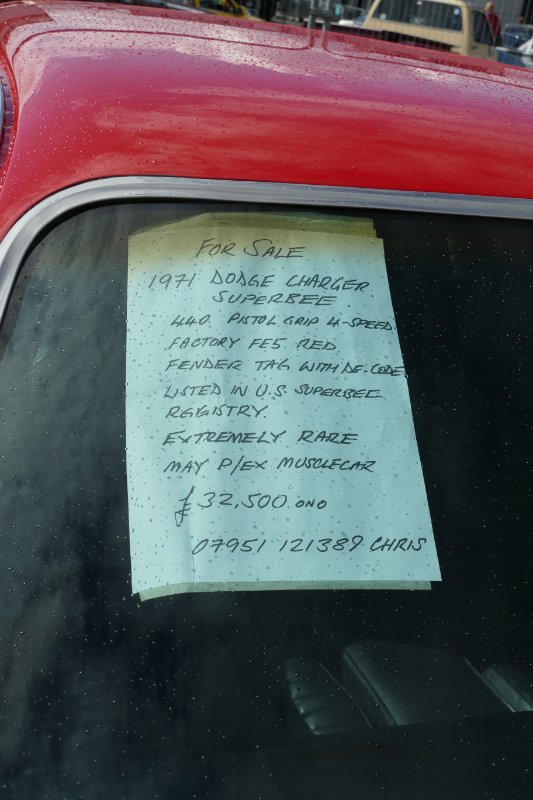 FOR SALE
1971 DODGE CHARGER
SUPERBEE
440 PISTOL GRIP 4-SPEED
FACTORY FE5 RED
FENDER TAG WITH DE-CODE
LISTED IN U.S SUPERBEE
REGISTRY.
EXTREMELY RARE
MAY P/EX MUSCLECAR
£32,500 ONO
07951 121389 CHRIS